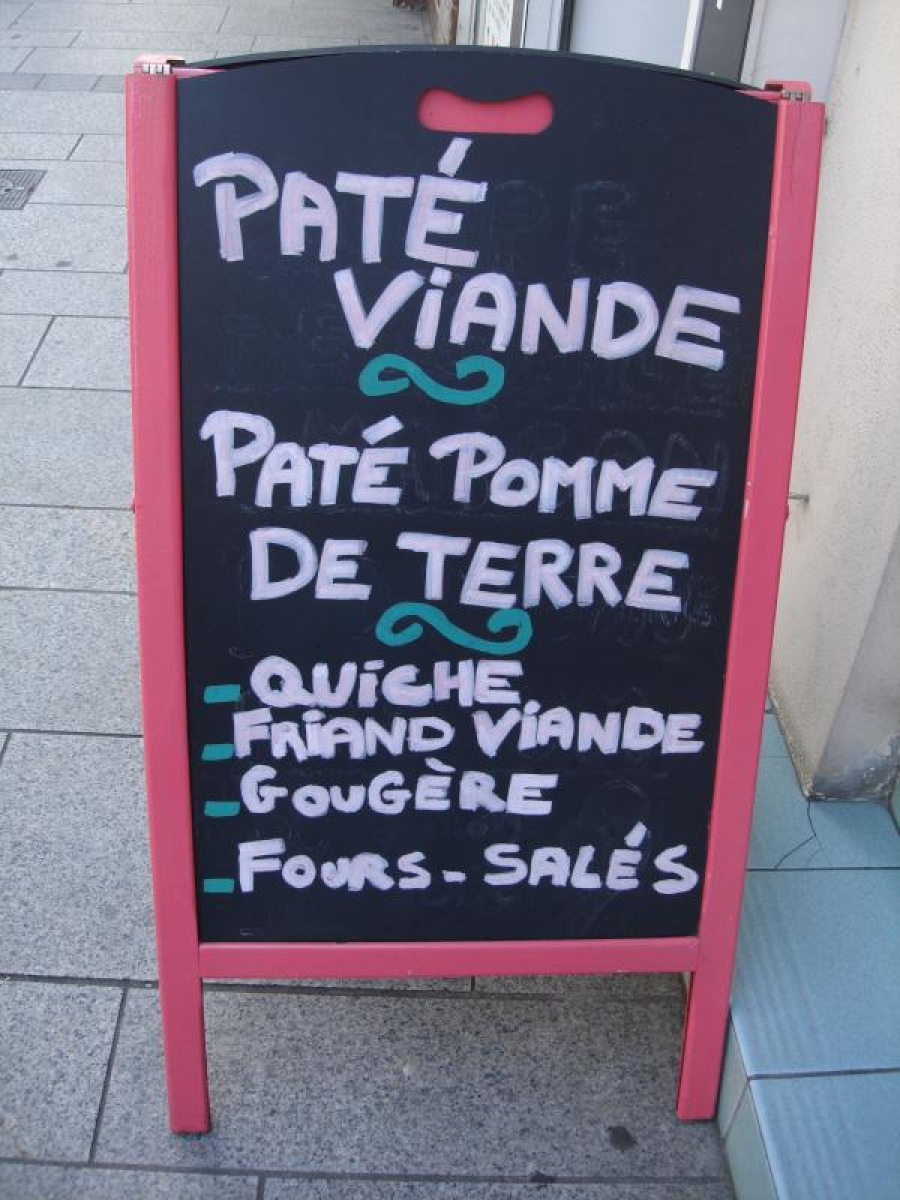 PATÉ
ViANDE
PATÉ POMME
DE TERRE
- QUiCHE
- FRiAND ViANDE
- GOUGÈRE
- FOURS - SALÉS